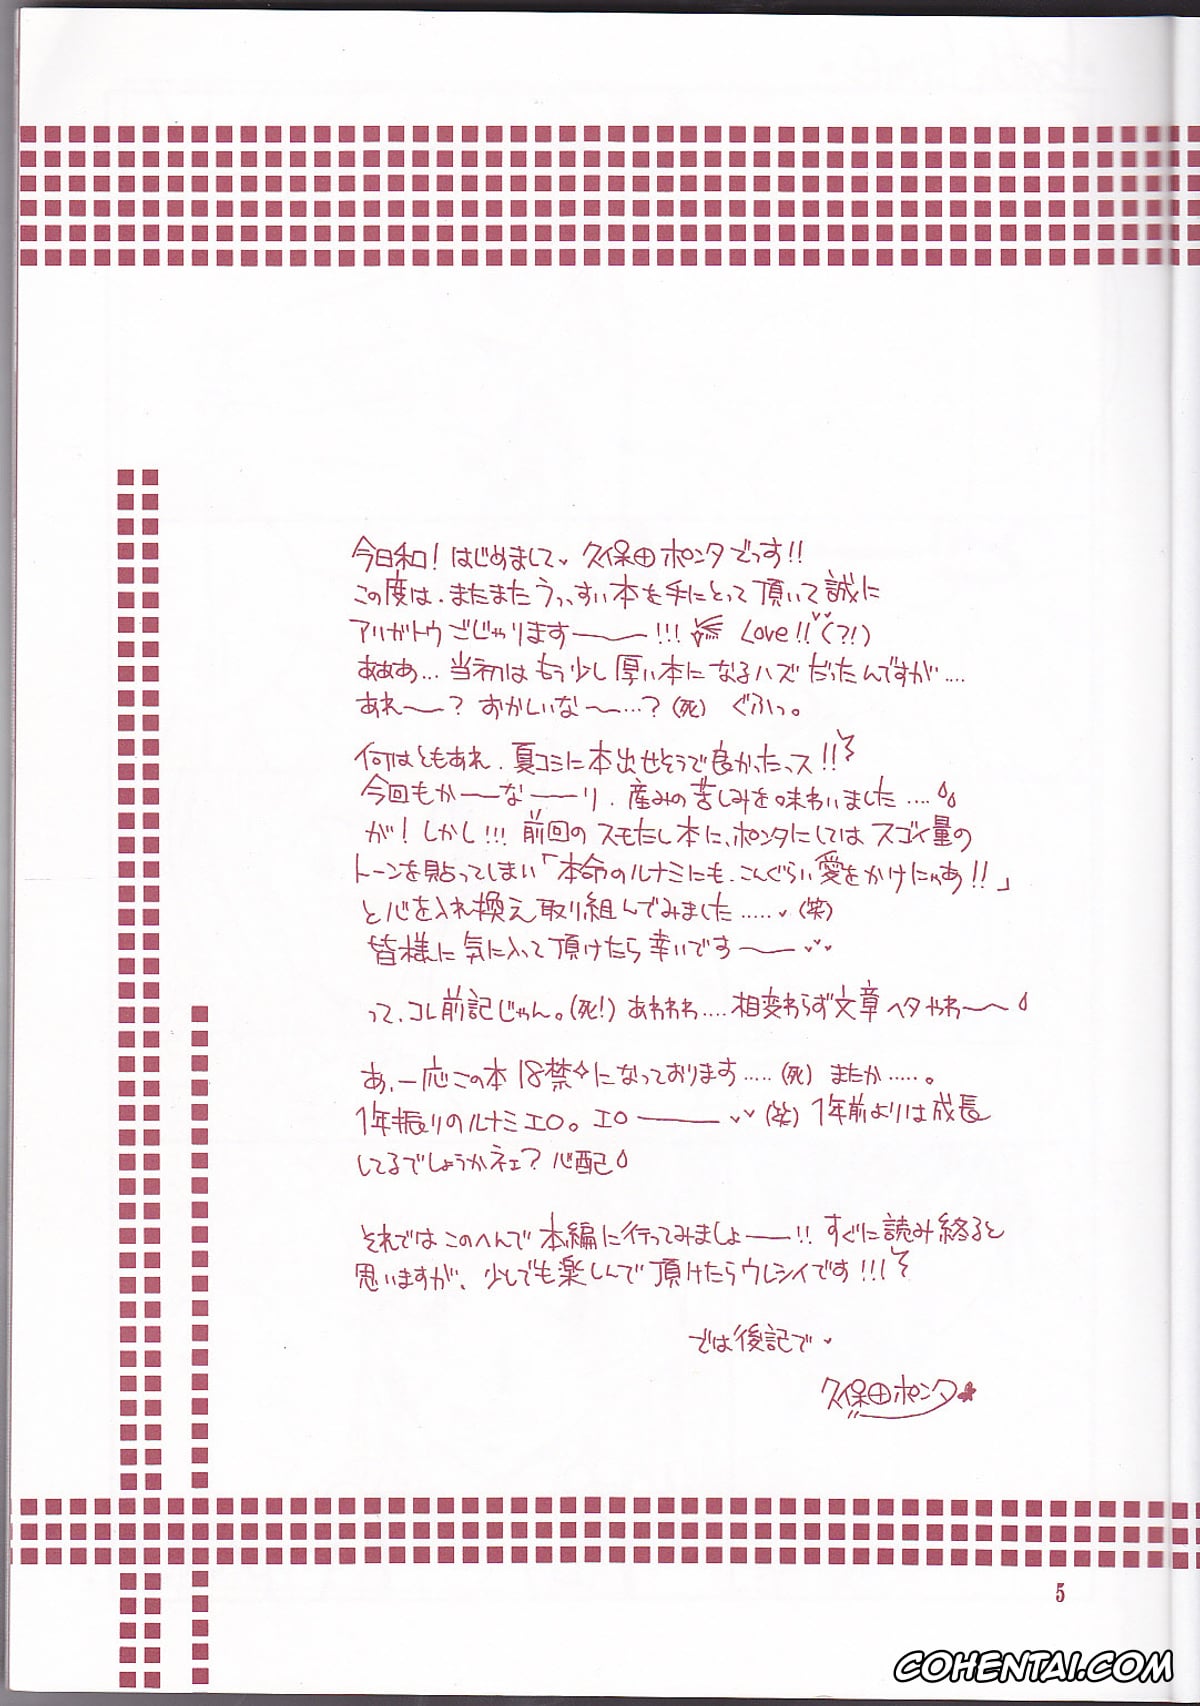 今日和!はじめまして♥ 久保田ポンタでっす!!
この度は、またまたうっっすい本を手にとって頂いて誠に
アリガトウごじゃりますーーー!!! Love!!(?!)
あああ…当初はもう少し厚い本になるハズだったんですが….
あれー〜?おかしいな〜…?(死) ぐふっ。
何はともあれ、夏コミに本出せそうで良かったっス!!
今回もかーーなーーり、産みの苦しみを味わいました….
が!しかし!!!前回のスモたし本に、ポンタにしてはスゴイ量の
トーンを貼ってしまい「本命のルナミにも、こんぐらい愛をかけにゃあ!!」
と心を入れ換え取り組んでみました…..♥(笑)
皆様に気に入って頂けたら幸いですー〜♥♥
って、コレ前記じゃん。(死!) あわわわ….相変わらず文章ヘタやわ〜〜
あ、一応この本18禁✧になっております…..(死) またか…..。
1年振りのルナミエロ。エローーー♥♥(笑) 1年前よりは成長
してるでしょうかネェ?心配
それではこのへんで本編に行ってみましょーー!!すぐに読み終ると
思いますが、少しでも楽しんで頂けたらウレシイです!!!
では後記で♥
久保田ポンタ
5
COHENTAI.COM